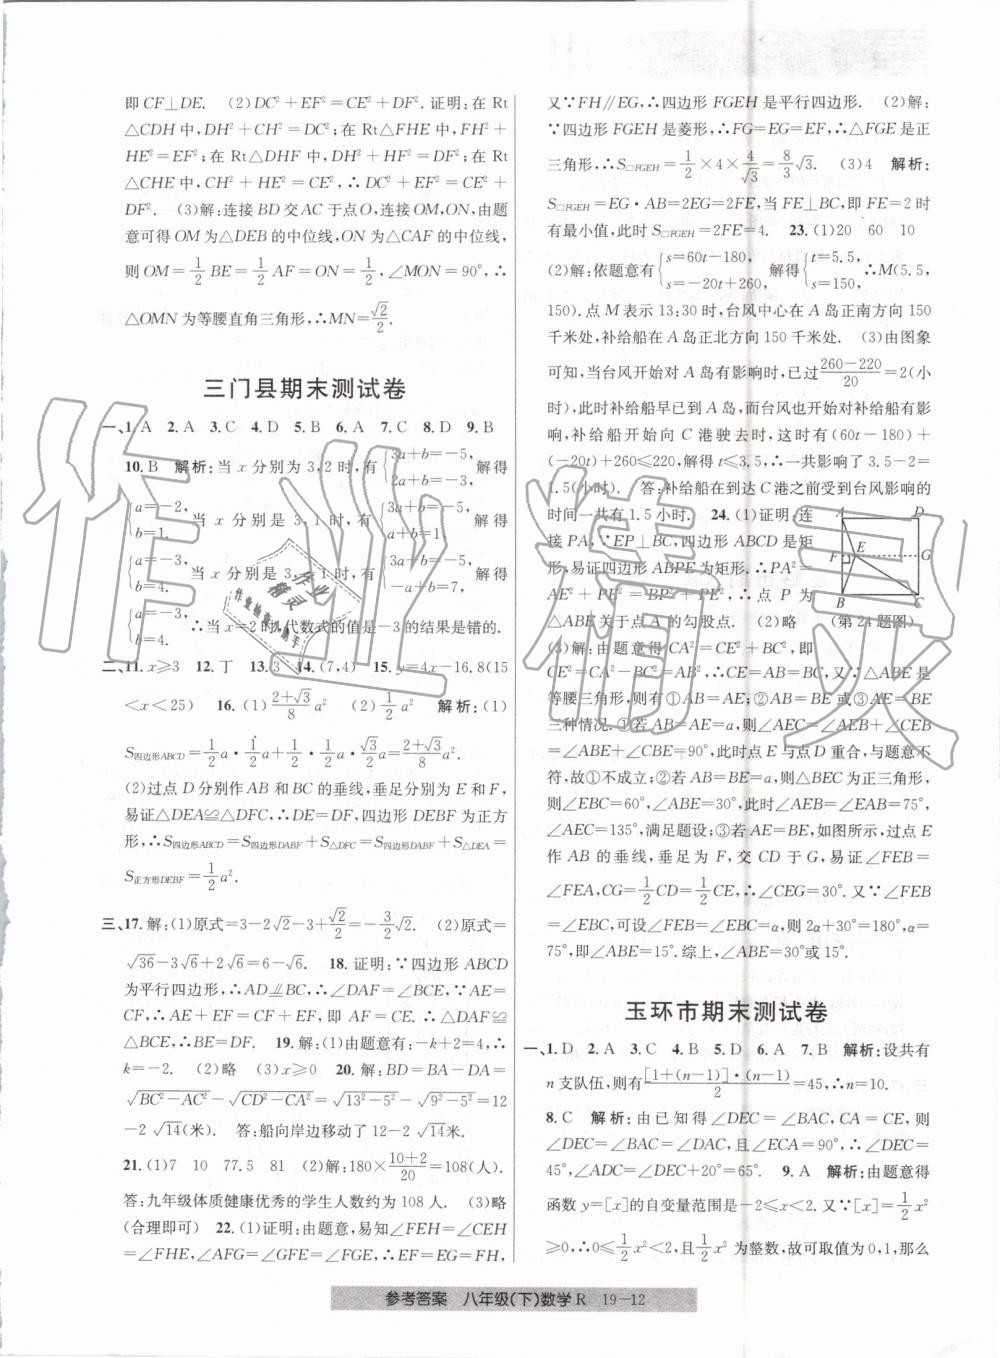 即 CF⊥DE. (2)DC²+EF²=CE²+DF². 证明:在 Rt
△CDH 中,DH²+CH²=DC²;在 Rt△FHE 中,FH²+
HE²=EF²;在 Rt△DHF 中,DH²+HF²=DF²;在 Rt
△CHE 中,CH²+HE²=CE²,∴DC²+EF²=CE²+
DF². (3)解:连接 BD 交 AC 于点 O,连接 OM,ON,由题
意可得 OM 为△DEB 的中位线,ON 为△CAF 的中位线,
则 OM=1/2 BE=1/2 AF=ON=1/2,∠MON=90°,∴
△OMN 为等腰直角三角形,∴MN=√2/2.
三门县期末测试卷
一、1. A 2. A 3. C 4. D 5. B 6. A 7. C 8. D 9. B
10. B 解析:当 x 分别为 3,2 时,有{3a+b=-5, 2a+b=-3, 解得
{a=-2, b=1. 当 x 分别是 3,1 时,有{3a+b=-5, a+b=1, 解得
{a=-3, b=4. 当 x 分别是 3,-1 时,有{3a+b=-5, -a+b=7, 解得
{a=-3, b=4. ∴当 x=2 时,代数式的值是-3 的结果是错的.
二、11. x≥3 12. 丁 13. 3 14. (7,4) 15. y=4x-16.8(15
<x<25) 16. (1)(2+√3)/8 a² (2)1/2 a² 解析:(1)
S四边形ABCD=1/2 a·1/2 a+1/2·1/2 a·√3/2 a=(2+√3)/8 a².
(2)过点 D 分别作 AB 和 BC 的垂线,垂足分别为 E 和 F,
易证△DEA≌△DFC,∴DE=DF,四边形 DEBF 为正方
形,∴S四边形ABCD=S四边形DABF+S△DFC=S四边形DABF+S△DEA=
S正方形DEBF=1/2 a².
三、17. 解:(1)原式=3-2√2-3+√2/2=-3/2 √2. (2)原式=
√36-3√6+2√6=6-√6. 18. 证明:∵四边形 ABCD
为平行四边形,∴AD∥BC,∴∠DAF=∠BCE,∵AE=
CF,∴AE+EF=CF+EF,即 AF=CE. ∴△DAF≌
△BCE,∴BE=DF. 19. 解:(1)由题意有:-k+2=4,∴
k=-2. (2)略 (3)x≥0 20. 解:BD=BA-DA=
√(BC²-AC²)-√(CD²-CA²)=√(13²-5²)-√(9²-5²)=12
-2√14(米). 答:船向岸边移动了 12-2√14米.
21. (1)7 10 77.5 81 (2)解:180×(10+2)/20=108(人).
答:九年级体质健康优秀的学生人数约为 108 人. (3)略
(合理即可) 22. (1)证明:由题意,易知∠FEH=∠CEH
=∠FHE,∠AFG=∠GFE=∠FGE,∴EF=EG=FH,
又∵FH∥EG,∴四边形 FGEH 是平行四边形. (2)解:
∵四边形 FGEH 是菱形,∴FG=EG=EF,∴△FGE 是正
三角形,∴S□FGEH=1/2×4×4/√3=8/3 √3. (3)4 解析:
S□FGEH=EG·AB=2EG=2FE,当 FE⊥BC,即 FE=2 时
有最小值,此时 S□FGEH=2FE=4. 23. (1)20 60 10
(2)解:依题意有{s=60t-180, s=-20t+260, 解得{t=5.5, s=150, ∴M(5.5,
150). 点 M 表示 13:30 时,台风中心在 A 岛正南方向 150
千米处,补给船在 A 岛正北方向 150 千米处. (3)由图象
可知,当台风开始对 A 岛有影响时,已过(260-220)/20=2(小
时),此时补给船早已到 A 岛,而台风开始对补给船有影
响,补给船开始向 C 港驶去时,这时有(60t-180)+
(-20t)+260≤220,解得 t≤3.5,∴一共影响了 3.5-2=
1.5(小时). 答:补给船在到达 C 港之前受到台风影响的
时间一共有 1.5 小时. 24. (1)证明:连
接 PA,∵EP⊥BC,四边形 ABCD 是矩
形,易证四边形 ABPE 为矩形,∴PA²=
AE²+PE²=BP²+PE²,∴点 P 为
△ABE 关于点 A 的勾股点. (2)略
A D E F G B C
(第 24 题图)
(3)解:由题意得 CA²=CE²+CB²,即
CE²=CA²-BC²=AB²,∴CE=AB=BC,又△ABE 是
等腰三角形,则有①AB=AE;②AB=BE 或③AE=BE
三种情况. ①若 AB=AE=a,则∠AEC=∠AEB+∠CEB
=∠ABE+∠CBE=90°,此时点 E 与点 D 重合,与题意不
符,故①不成立;②若 AB=BE=a,则△BEC 为正三角形,
则∠EBC=60°,∠ABE=30°,此时∠AEB=∠EAB=75°,
∠AEC=135°,满足题设;③若 AE=BE,如图所示,过点 E
作 AB 的垂线,垂足为 F,交 CD 于 G,易证∠FEB=
∠FEA,CG=1/2 CD=1/2 CE,∴∠CEG=30°. 又∵∠FEB
=∠EBC,可设∠FEB=∠EBC=α,则 2α+30°=180°,α=
75°,即∠ABE=15°. 综上,∠ABE=30°或 15°.
玉环市期末测试卷
一、1. D 2. A 3. C 4. B 5. D 6. A 7. B 解析:设共有
n 支队伍,则有[1+(n-1)]·(n-1)/2=45,∴n=10.
8. C 解析:由已知得∠DEC=∠BAC,CA=CE,则
∠DEC=∠BAC=∠DAC,且∠ECA=90°,∴∠DEC=
45°,∠ADC=∠DEC+20°=65°. 9. A 解析:由题意得
函数 y=[x]的自变量范围是-2≤x<2. 又∵[x]=1/2 x²
≥0,∴0≤1/2 x²<2,且1/2 x² 为整数,故可取值为 0,1,那么
参考答案 八年级(下)数学 R 19-12
作业精灵
作业精灵